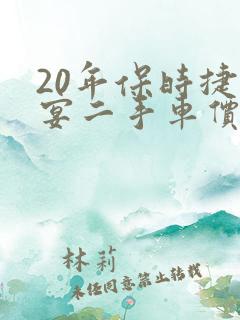 20年保時捷
宴二手車價
林莉
未经同意禁止转载